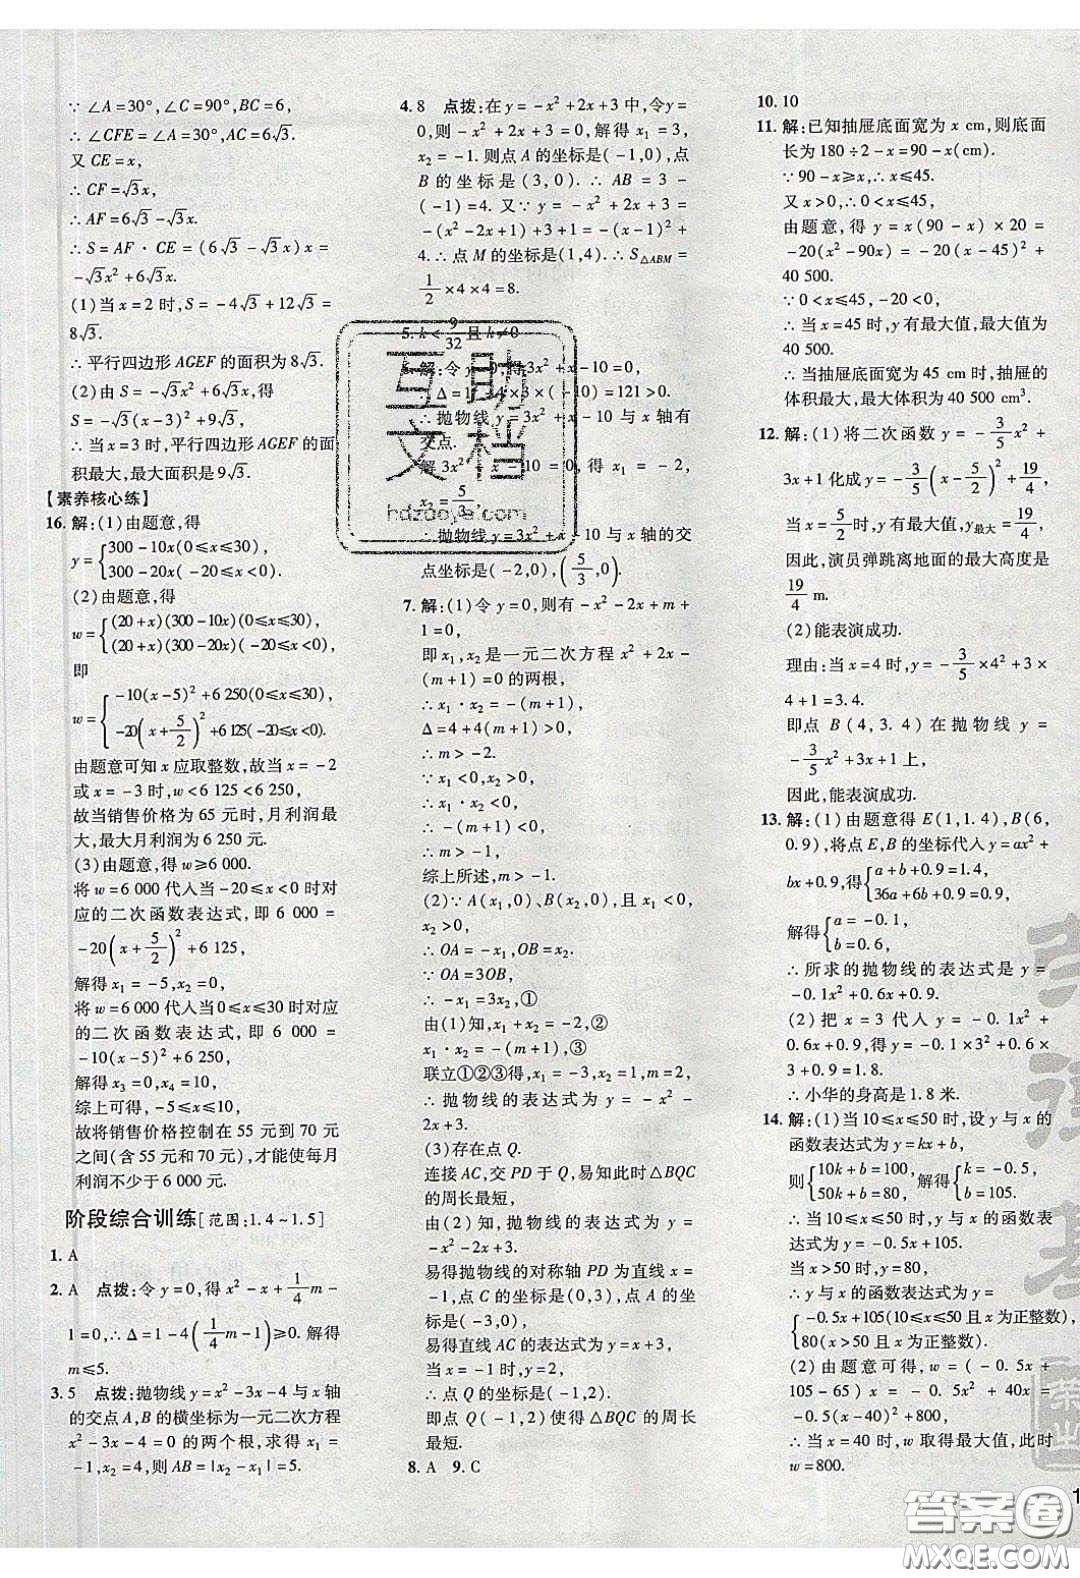 ∵ ∠A=30°,∠C=90°,BC=6,
∴ ∠CFE=∠A=30°,AC=6√3.
又 CE=x,
∴ CF=√3x,
∴ AF=6√3-√3x.
∴ S=AF·CE=(6√3-√3x)x=
-√3x²+6√3x.
(1)当 x=2 时,S=-4√3+12√3=
8√3.
∴ 平行四边形 AGEF 的面积为 8√3.
(2)由 S=-√3x²+6√3x,得
S=-√3(x-3)²+9√3,
∴ 当 x=3 时,平行四边形 AGEF 的面
积最大,最大面积是 9√3.
【素养核心练】
16. 解:(1)由题意,得
y={300-10x(0≤x≤30),
300-20x(-20≤x<0).
(2)由题意,得
w={(20+x)(300-10x)(0≤x≤30),
(20+x)(300-20x)(-20≤x<0),
即
w={-10(x-5)²+6 250(0≤x≤30),
-20(x+5/2)²+6 125(-20≤x<0).
由题意可知 x 应取整数,故当 x=-2
或 x=-3 时,w<6 125<6 250,
故当销售价格为 65 元时,月利润最
大,最大月利润为 6 250 元.
(3)由题意,得 w≥6 000.
将 w=6 000 代入当 -20≤x<0 时对
应的二次函数表达式,即 6 000=
-20(x+5/2)²+6 125,
解得 x₁=-5,x₂=0,
将 w=6 000 代入当 0≤x≤30 时对应
的二次函数表达式,即 6 000=
-10(x-5)²+6 250,
解得 x₃=0,x₄=10,
综上可得,-5≤x≤10,
故将销售价格控制在 55 元到 70 元
之间(含 55 元和 70 元),才能使每月
利润不少于 6 000 元.
阶段综合训练[范围:1.4~1.5]
1. A
2. A 点拨:令 y=0,得 x²-x+1/4m-
1=0,∴ Δ=1-4(1/4m-1)≥0. 解得
m≤5.
3. 5 点拨:抛物线 y=x²-3x-4 与 x 轴
的交点 A,B 的横坐标为一元二次方程
x²-3x-4=0 的两个根,求得 x₁=
-1,x₂=4,则 AB=|x₂-x₁|=5.
4. 8 点拨:在 y=-x²+2x+3 中,令 y=
0,则 -x²+2x+3=0,解得 x₁=3,
x₂=-1. 则点 A 的坐标是(-1,0),点
B 的坐标是(3,0). ∴ AB=3-
(-1)=4. 又∵ y=-x²+2x+3=
-(x²-2x+1)+3+1=-(x-1)²+
4. ∴ 点 M 的坐标是(1,4). ∴ S△ABM=
1/2×4×4=8.
5. k<9/32 且 k≠0
解:令 y=0,得 3x²+x-10=0,
Δ=1²-4×3×(-10)=121>0.
∴ 抛物线 y=3x²+x-10 与 x 轴有
交点.
解 3x²+x-10=0,得 x₁=-2,
x₂=5/3.
∴ 抛物线 y=3x²+x-10 与 x 轴的交
点坐标是(-2,0),(5/3,0).
7. 解:(1)令 y=0,则有 -x²-2x+m+
1=0,
即 x₁,x₂ 是一元二次方程 x²+2x-
(m+1)=0 的两根,
∴ x₁·x₂=-(m+1),
Δ=4+4(m+1)>0,
∴ m>-2.
∵ x₁<0,x₂>0,
∴ x₁·x₂<0,
∴ -(m+1)<0,
∴ m>-1,
综上所述,m>-1.
(2)∵ A(x₁,0)、B(x₂,0),且 x₁<
0,x₂>0,
∴ OA=-x₁,OB=x₂.
∵ OA=3OB,
∴ -x₁=3x₂,①
由(1)知,x₁+x₂=-2,②
x₁·x₂=-(m+1),③
联立①②③得,x₁=-3,x₂=1,m=2,
∴ 抛物线的表达式为 y=-x²-
2x+3.
(3)存在点 Q.
连接 AC,交 PD 于 Q,易知此时△BQC
的周长最短,
由(2)知,抛物线的表达式为 y=
-x²-2x+3,
易得抛物线的对称轴 PD 为直线 x=
-1,点 C 的坐标是(0,3),点 A 的坐标
是(-3,0),
易得直线 AC 的表达式为 y=x+3,
当 x=-1 时,y=2,
∴ 点 Q 的坐标是(-1,2),
即点 Q(-1,2)使得△BQC 的周长
最短.
8. A 9. C
10. 10
11. 解:已知抽屉底面宽为 x cm,则底面
长为 180÷2-x=90-x(cm).
∵ 90-x≥x,∴ x≤45,
又 x>0,∴ 0<x≤45,
由题意,得 y=x(90-x)×20=
-20(x²-90x)=-20(x-45)²+
40 500.
∵ 0<x≤45,-20<0,
∴ 当 x=45 时,y 有最大值,最大值为
40 500.
∴ 当抽屉底面宽为 45 cm 时,抽屉的
体积最大,最大体积为 40 500 cm³.
12. 解:(1)将二次函数 y=-3/5x²+
3x+1 化成 y=-3/5(x-5/2)²+19/4,
当 x=5/2 时,y 有最大值,y最大=19/4,
因此,演员弹跳离地面的最大高度是
19/4 m.
(2)能表演成功.
理由:当 x=4 时,y=-3/5×4²+3×
4+1=3.4.
即点 B(4,3.4)在抛物线 y=
-3/5x²+3x+1 上,
因此,能表演成功.
13. 解:(1)由题意得 E(1,1.4),B(6,
0.9),将点 E,B 的坐标代入 y=ax²+
bx+0.9,得{a+b+0.9=1.4,
36a+6b+0.9=0.9,
解得{a=-0.1,
b=0.6,
∴ 所求的抛物线的表达式是 y=
-0.1x²+0.6x+0.9.
(2)把 x=3 代入 y=-0.1x²+
0.6x+0.9,得 y=-0.1×3²+0.6×
3+0.9=1.8.
∴ 小华的身高是 1.8 米.
14. 解:(1)当 10≤x≤50 时,设 y 与 x 的
函数表达式为 y=kx+b,
则{10k+b=100,
50k+b=80,解得{k=-0.5,
b=105.
∴ 当 10≤x≤50 时,y 与 x 的函数表
达式为 y=-0.5x+105.
当 x>50 时,y=80,
∴ y 与 x 的函数表达式为 y=
{-0.5x+105(10≤x≤50 且 x 为正整数),
80(x>50 且 x 为正整数).
(2)由题意可得,w=(-0.5x+
105-65)x=-0.5x²+40x=
-0.5(x-40)²+800,
∴ 当 x=40 时,w 取得最大值,此时
w=800.
互助
文档
hdzdoye.com
1
答案圈
MXQE.COM